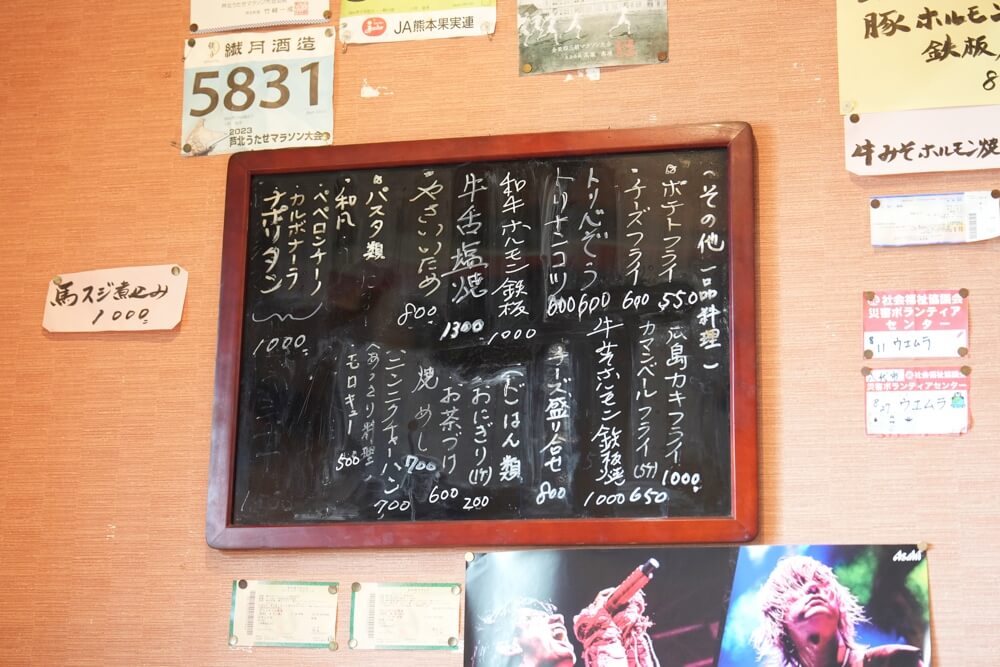 JA熊本果実連
繊月酒造
5831
2023
芦北うたせマラソン大会
豚ホルモン
鉄板
8
牛みそホルモン焼
馬スジ煮込み
1000
(その他 一品料理)
ポテトフライ 550
チーズフライ 600
トリなんこつ 600
和牛ホルモン鉄板 1000
牛舌塩焼 1300
やさいいため 800
パスタ類
和風
ペペロンチーノ
カルボナーラ
ナポリタン
1000
広島カキフライ 1000
カマンベールフライ(5ケ) 650
牛みそホルモン鉄板焼 1000
チーズ盛り合せ 800
(ごはん類
おにぎり(1ケ) 200
お茶づけ 600
焼めし 700
ニンニクチャーハン 700
(あっさり料理)
モロキュー 500
社会福祉協議会
災害ボランティア
センター
8/11 ウエムラ
社会福祉協議会
災害ボランティアセンター
8/27 ウエムラ
Asahi